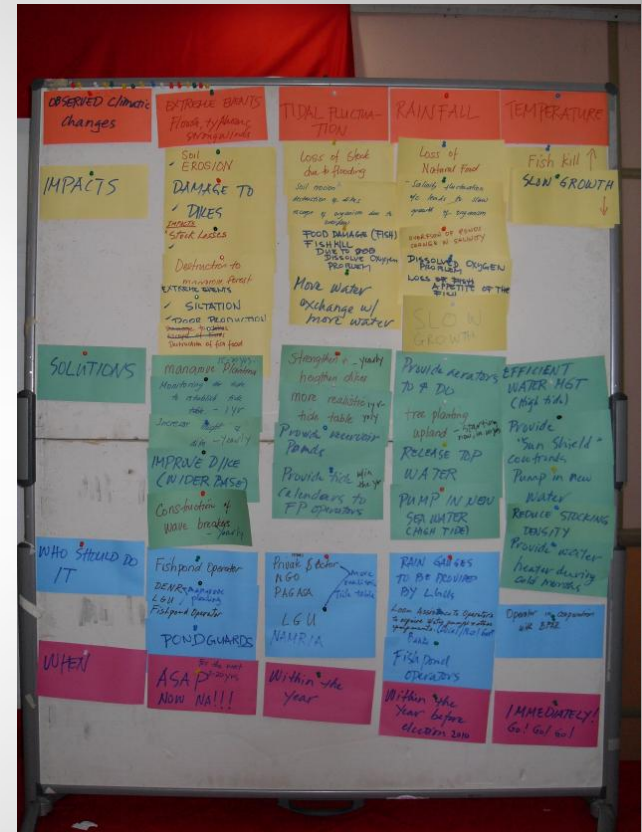 OBSERVED Climatic
Changes
EXTREME EVENTS
Floods, typhoons
strongwinds
TIDAL FLUCTUA-
TION
RAINFALL
TEMPERATURE
IMPACTS
Soil
✓ EROSION
DAMAGE TO
✓ DIKES
IMPACTS
* Stock Losses
✓
Destruction to
mangrove forest
EXTREME EVENTS
✓ SILTATION
✓ POOR PRODUCTION
Destruction of fish food
Loss of Stock
due to flooding
Soil erosion
destruction of dikes
escape of organism due to
FOOD DAMAGE (FISH)
FISHKILL
DUE TO
DISSOLVE OXYGEN
PROBLEM
Move Water
exchange w/
more water
Loss of
Natural Food
- Salinity fluctuation
w/c leads to slow
growth of organism
CHANGE IN SALINITY
DISSOLVED OXYGEN
PROBLEM
LOSS OF FISH
APPETITE OF THE
FISH
SLOW
GROWTH
Fish Kill ↑
SLOW GROWTH
↓
SOLUTIONS
mangrove Planting
Monitoring the tide
to establish tide
table - 1yr
Increase height of
dike - yearly
IMPROVE DIKE
(WIDER BASE)
Construction of
wave breakers
- yearly
Strengthen & - yearly
heighten dikes
more realistic
tide table
Provide reservoir
Ponds
Provide tide
calendars to
FP operators
Provide aerators
to ↑ DO
tree planting
upland
RELEASE TOP
WATER
PUMP IN NEW
SEA WATER
(HIGH TIDE)
EFFICIENT
WATER MGT
(High tide)
Provide
"Sun Shield"
Pump in new
Water
REDUCE STOCKING
DENSITY
Provide water
heater during
cold months
WHO SHOULD DO
IT
Fishpond Operator
DENR
LGU
Fishpond Operator
PONDGUARDS
Private Sector
NGO
PAGASA
LGU
NAMRIA
more
realistic
tide table
RAIN GAUGES
TO BE PROVIDED
BY LGUs
Loan Assistance to Operators
Fishpond
operators
Operator in cooperation
WHEN
ASAP
NOW NA!!!
Within the
year
Within the
Year before
election 2010
IMMEDIATELY!
Go! Go! Go!